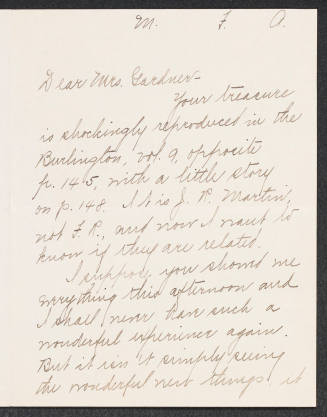 M. F. A.
Dear Mrs. Gardner—
Your treasure
is shockingly reproduced in the
Burlington, vol. 9, opposite
p. 145, with a little story
on p. 148. It is J. R. Martin,
not F. R., and now I want to
know if they are related.
I suppose you showed me
everything this afternoon and
I shall never have such a
wonderful experience again.
But it isn't simply seeing
the wonderful new things, it